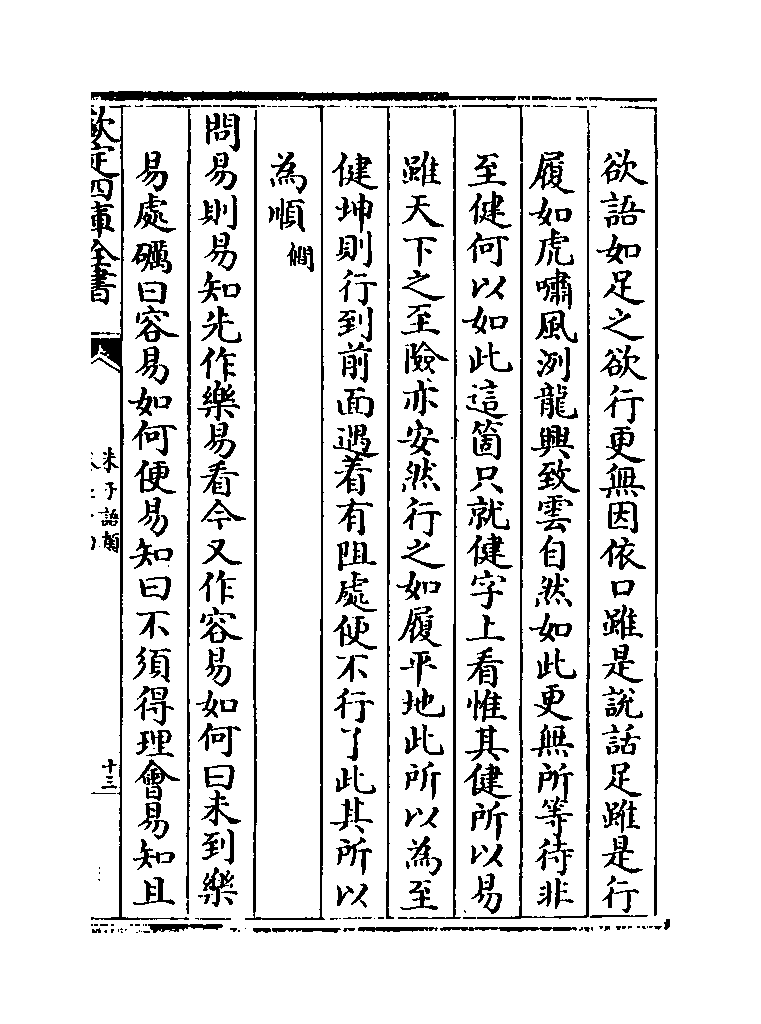 欲語如足之欲行更無因依口雖是說話足雖是行
履如虎嘯風冽龍興致雲自然如此更無所等待非
至健何以如此這箇只就健字上看惟其健所以易
雖天下之至險亦安然行之如履平地此所以為至
健坤則行到前面遇着有阻處便不行了此其所以
為順 僩
問易則易知先作樂易看今又作容易如何曰未到樂
易處礪曰容易如何便易知曰不須得理會易知且
欽定四庫全書
朱子語類
十三